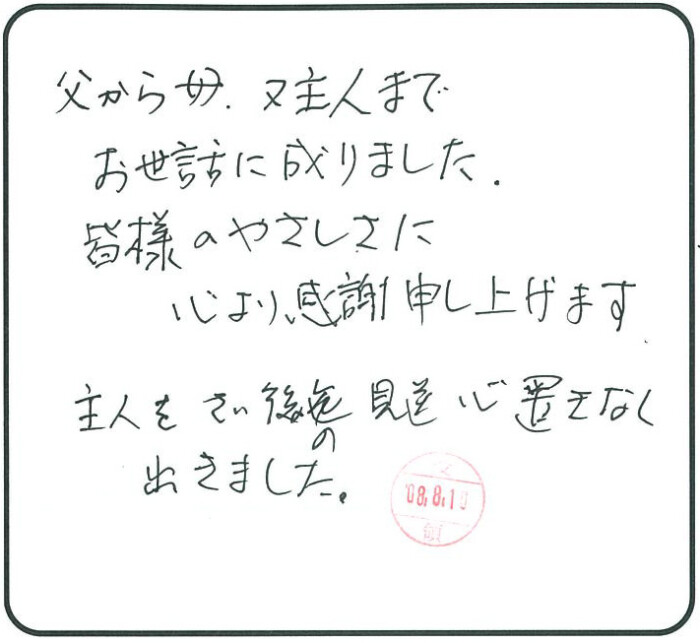 父から母、又主人まで
お世話に成りました.
皆様のやさしさに
心より感謝申し上げます
主人をさい後迄見送 心置きなく
の
出きました。
'08.8.1
領